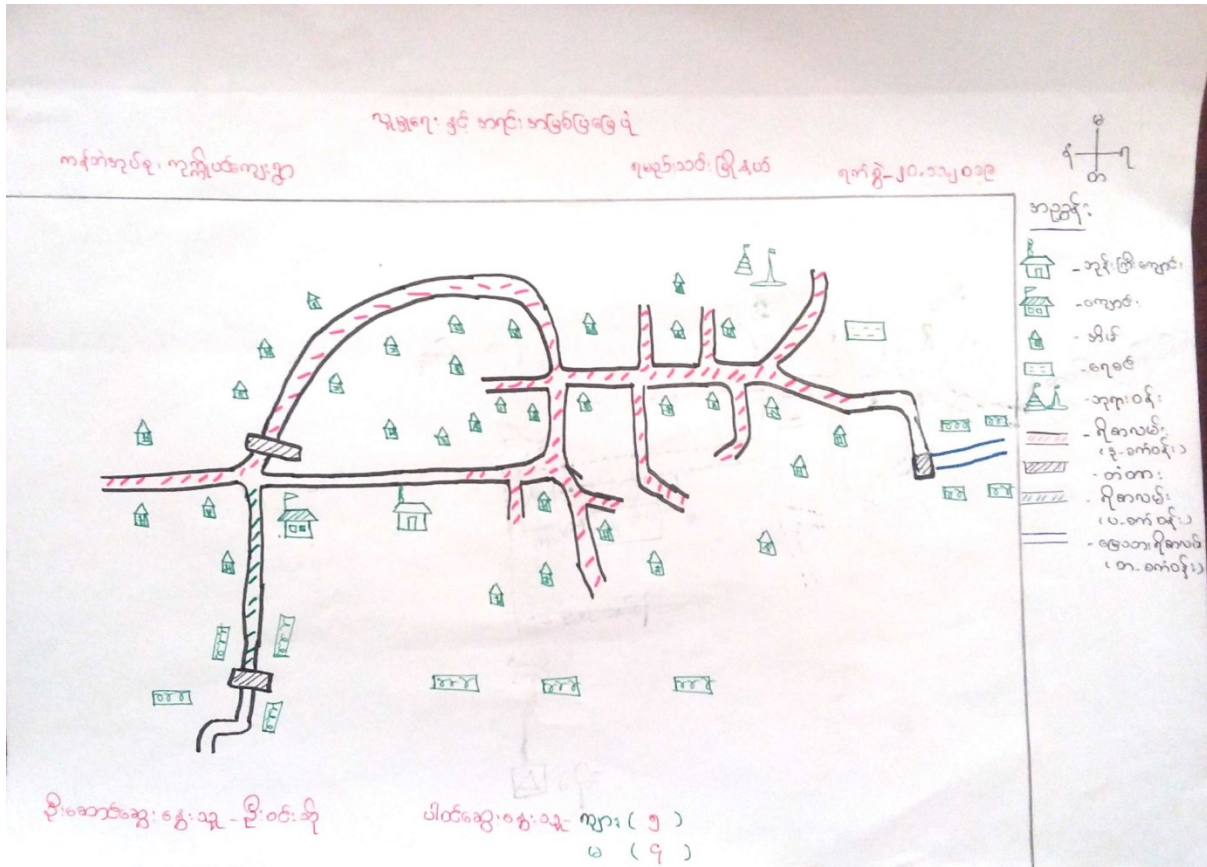 လူမှုရေး နှင့် အရင်းအမြစ်ပြမြေပုံ
ကန်ဘဲအုပ်စု၊ ကုက္ကိုယ်ကျေးရွာ
ရမည်းသင်းမြို့နယ်
ရက်စွဲ-၂၀.၁၁.၂၀၁၉
မ
န
ရ
တ
အညွှန်း
- ဘုန်းကြီးကျောင်း
- ကျောင်း
- အိမ်
- ရေစင်
- ဘုရားဝန်း
- ရိုစာလမ်း
(ဒု-စက်ဝန်း)
- တံတား
- ရိုစာလမ်း
(ပ-စက်ဝန်း)
- မြေသားရိုစာလမ်း
(တ-စက်ဝန်း)
ဦးဆောင်ဆွေးနွေးသူ - ဦးဝင်းဆို
ပါဝင်ဆွေးနွေးသူ- ကျား ( ၅ )
မ ( ၄ )